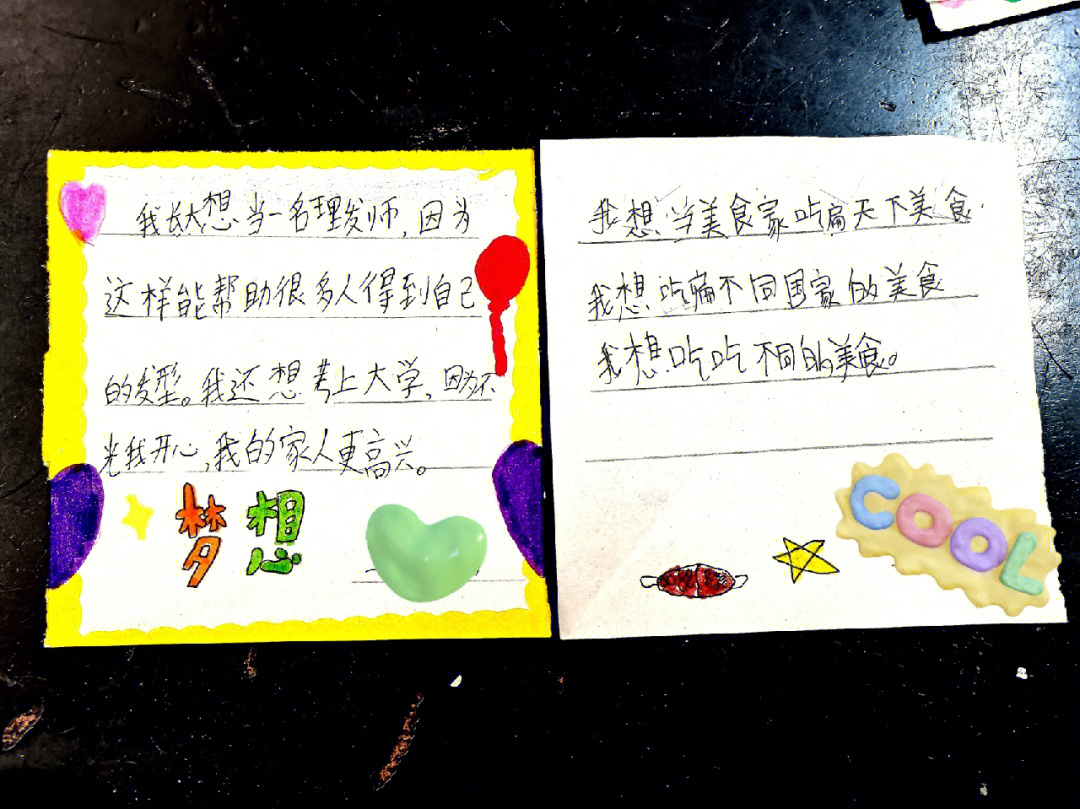 我长大想当一名理发师，因为
这样能帮助很多人得到自己
的发型。我还想考上大学，因为不
光我开心，我的家人更高兴。
梦想
我想当美食家吃扁天下美食.
我想吃遍不同国家的美食
我想吃吃不同的美食。
COOL